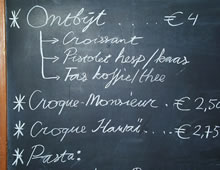 * Ontbijt .... €4
→ Croissant
→ Pistolet hesp/kaas
→ Tas koffie/thee
* Croque-Monsieur . €2,50
* Croque Hawaï .... €2,75
* Pasta: